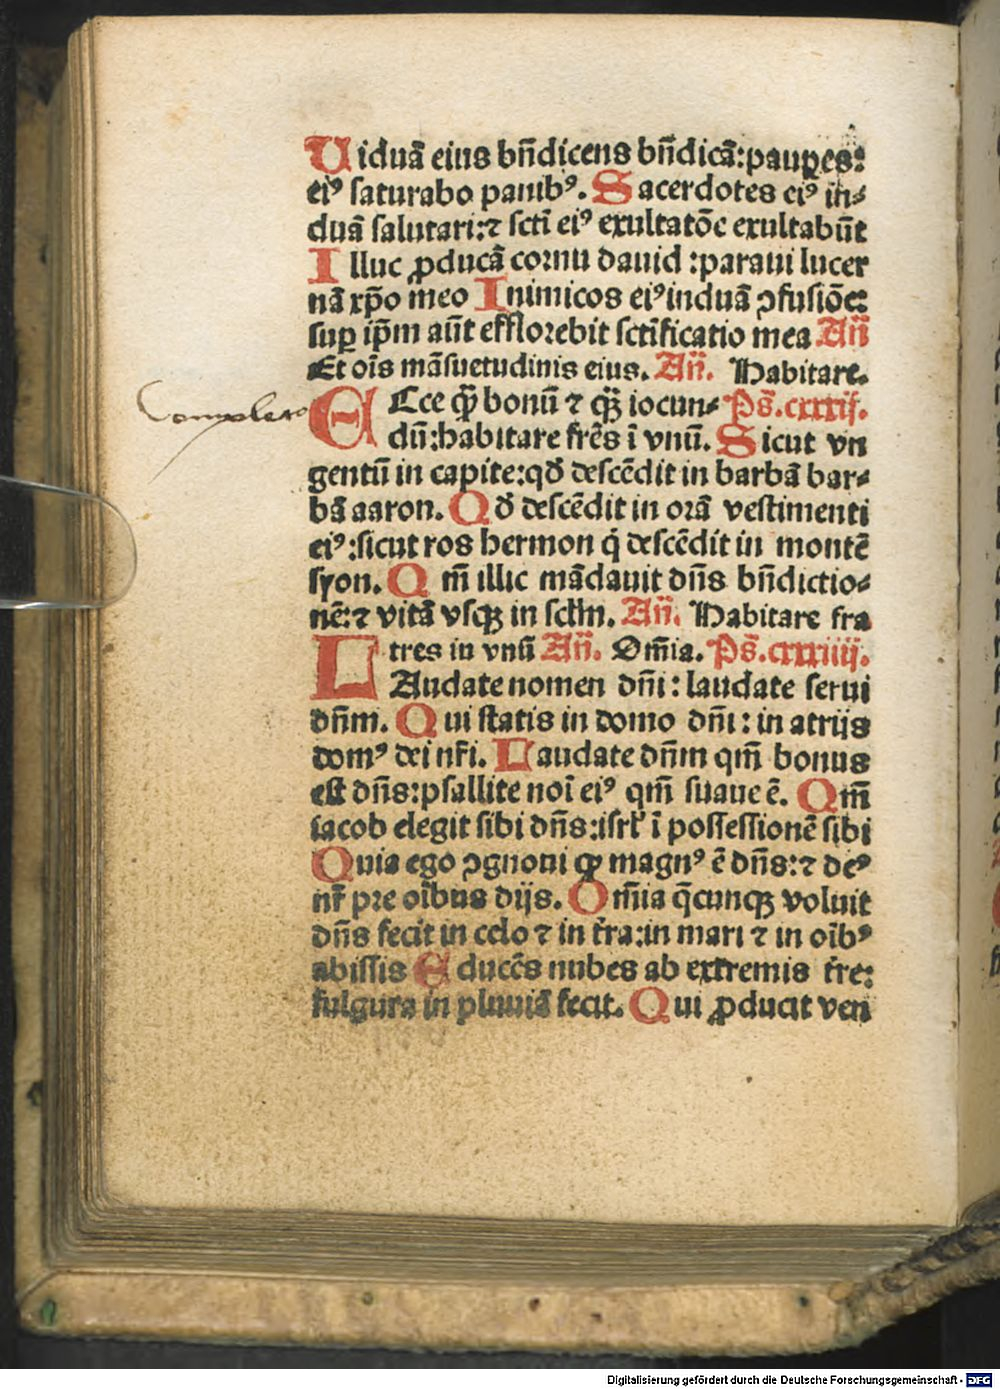 Uiduā eius bn̄dicens bn̄dicā: pauꝑes:
ei⁹ saturabo panib⁹. Sacerdotes ei⁹ in-
duā salutari: ⁊ scti ei⁹ exultatōe exultabūt
Illuc ꝓducā cornu dauid : paraui lucer
nā xp̄o meo Inimicos ei⁹ induā ↄfusiōe:
suꝑ ip̄m aūt efflorebit sctīficatio mea An̄
Et oīs māsuetudinis eius. An̄. Habitare.
Completo
ECce ꝙ̄ bonū ⁊ ꝙ̄ iocun- Ps̄. cxxxij.
dū: habitare frēs ī vnū. Sicut vn
gentū in capite: qđ descēdit in barbā bar-
bā aaron. Qđ descēdit in orā vestimenti
ei⁹: sicut ros hermon q̇ descēdit in montē
syon. Qm̄ illic mādauit dn̄s bn̄dictio-
nē: ⁊ vitā vsqꝫ in sclm̄. An̄. Habitare fra
tres in vnū An̄. Om̄ia. Ps̄. cxxxiiij.
LAudate nomen dn̄i : laudate serui
dn̄m. Qui statis in domo dn̄i : in atrijs
dom⁹ dei nr̄i. Laudate dn̄m qm̄ bonus
est dn̄s: psallite noī ei⁹ qm̄ suaue ē. Qm̄
iacob elegit sibi dn̄s: isrl̓ ī possessionē sibi
Quia ego ↄgnoui ꝙ magn⁹ ē dn̄s: ⁊ de⁹
nr̄ pre oībus dijs. Om̄ia q̄cunqꝫ voluit
dn̄s fecit in celo ⁊ in tr̄ra: in mari ⁊ in oīb⁹
abissis Educēs nubes ab extremis tr̄re:
fulgura in pluuiā fecit. Qui ꝓducit ven
Digitalisierung gefördert durch die Deutsche Forschungsgemeinschaft - DFG